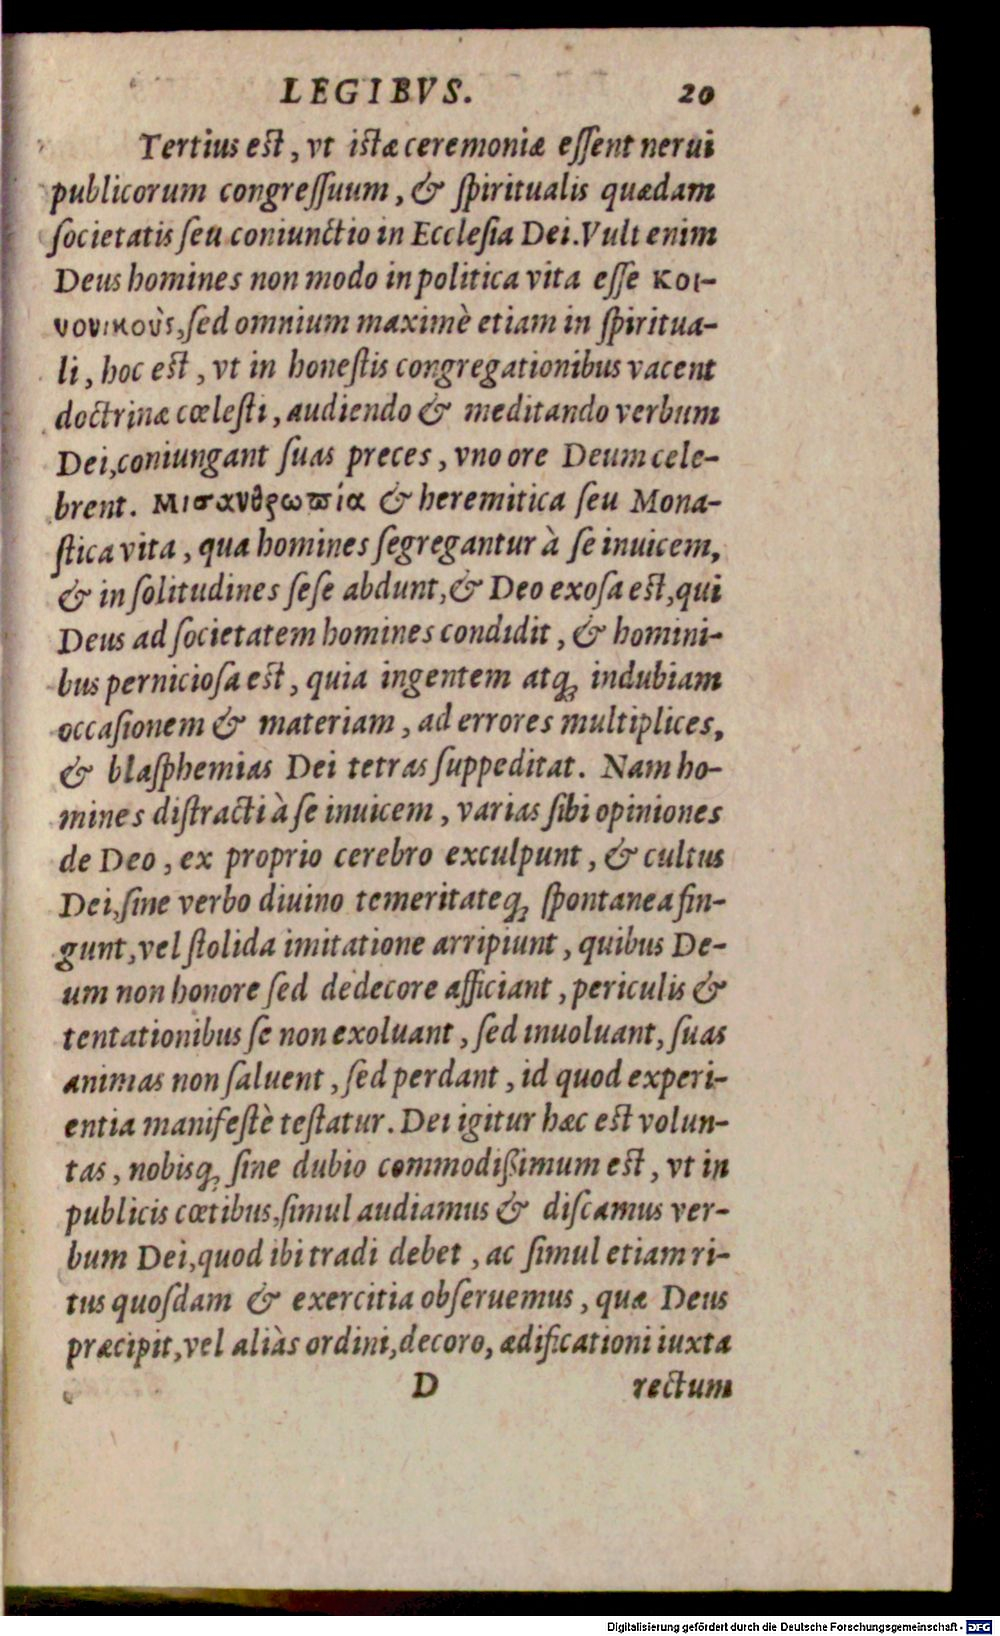 LEGIBVS. 20
Tertius est, vt istæ ceremoniæ eſſent nerui
publicorum congreſſuum, & ſpiritualis quædam
ſocietatis ſeu coniunctio in Eccleſia Dei. Vult enim
Deus homines non modo in politica vita eſſe κοι-
νονικοὺς, ſed omnium maximè etiam in ſpiritua-
li, hoc est, vt in honeſtis congregationibus vacent
doctrinæ cœleſti, audiendo & meditando verbum
Dei, coniungant ſuas preces, vno ore Deum cele-
brent. Μισανθρωπία & heremitica ſeu Mona-
ſtica vita, qua homines ſegregantur à ſe inuicem,
& in ſolitudines ſeſe abdunt, & Deo exoſa est, qui
Deus ad ſocietatem homines condidit, & homini-
bus pernicioſa est, quia ingentem atq; indubiam
occaſionem & materiam, ad errores multiplices,
& blaſphemias Dei tetras ſuppeditat. Nam ho-
mines diſtracti à ſe inuicem, varias ſibi opiniones
de Deo, ex proprio cerebro exculpunt, & cultus
Dei, ſine verbo diuino temeritateq; ſpontanea fin-
gunt, vel ſtolida imitatione arripiunt, quibus De-
um non honore ſed dedecore afficiant, periculis &
tentationibus ſe non exoluant, ſed inuoluant, ſuas
animas non ſaluent, ſed perdant, id quod experi-
entia manifeſtè teſtatur. Dei igitur hæc est volun-
tas, nobisq; ſine dubio commodiſſimum est, vt in
publicis cœtibus, ſimul audiamus & diſcamus ver-
bum Dei, quod ibi tradi debet, ac ſimul etiam ri-
tus quoſdam & exercitia obſeruemus, quæ Deus
præcipit, vel aliàs ordini, decoro, ædificationi iuxta
D rectum
Digitalisierung gefördert durch die Deutsche Forschungsgemeinschaft - DFG